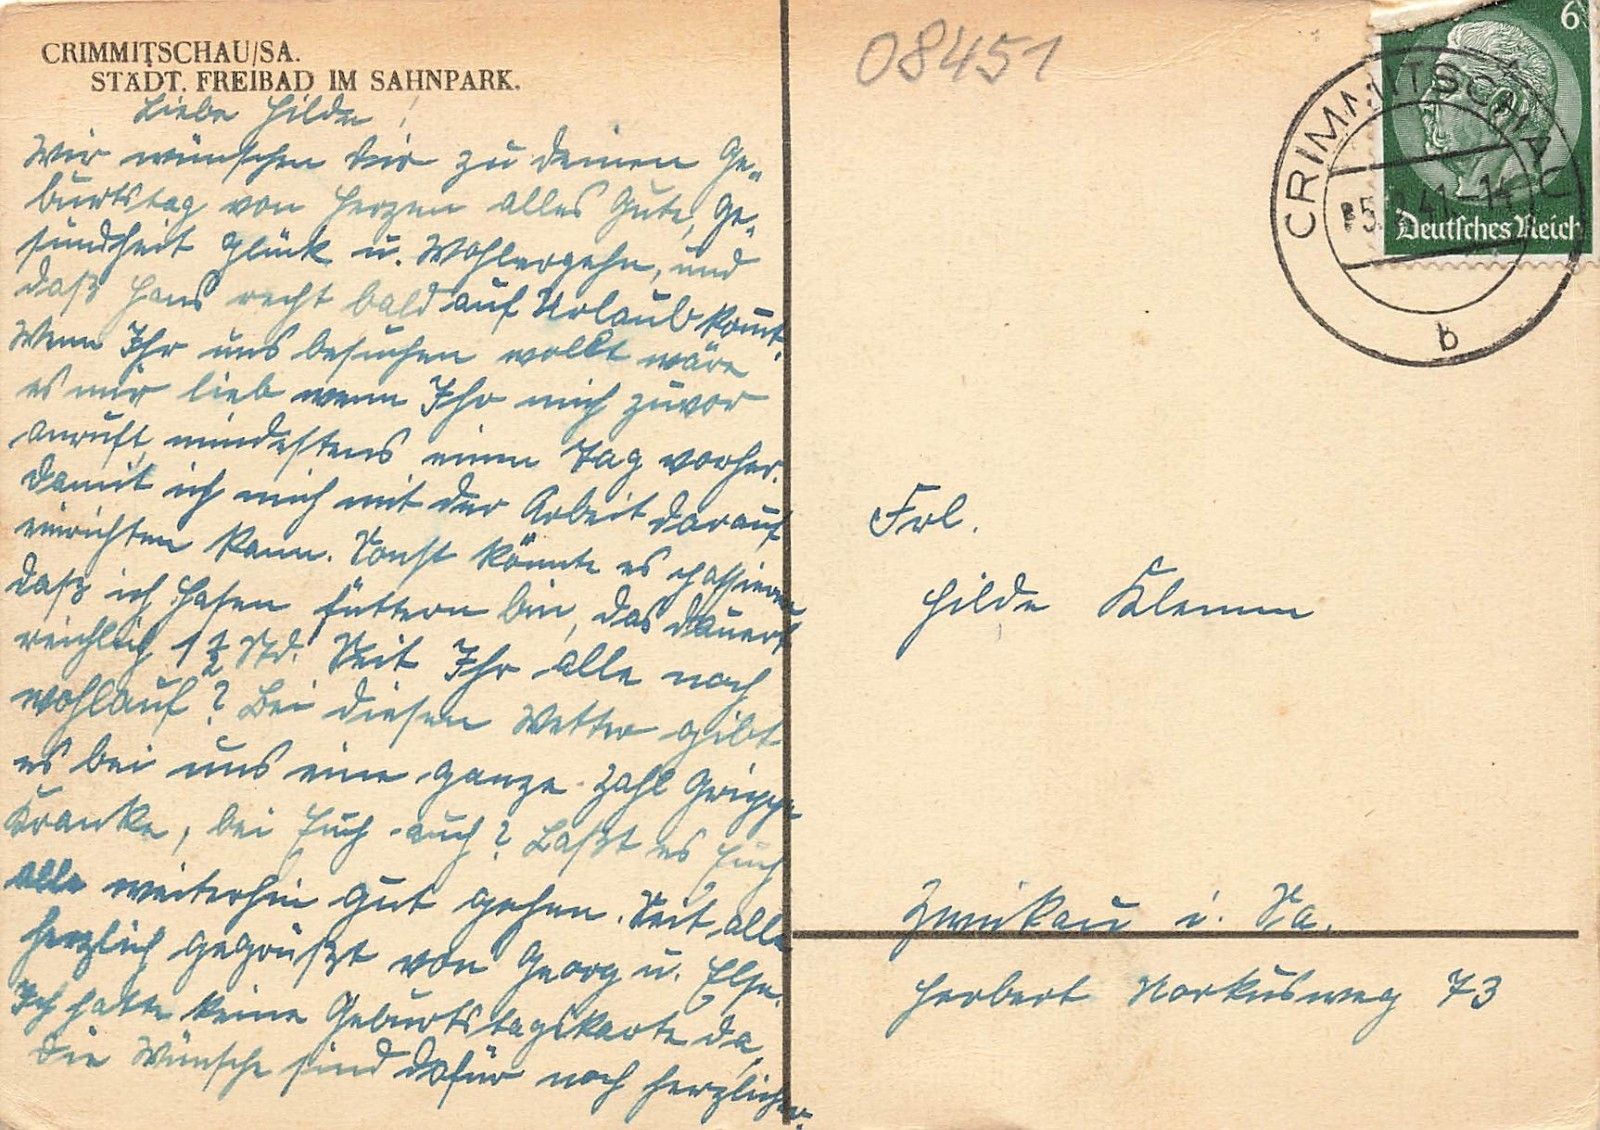 CRIMMITSCHAU/SA.
STÄDT. FREIBAD IM SAHNPARK.
Liebe Hilde!
Wir wünschen Dir zu deinen Ge-
burtstag von Herzen alles Gute, Ge-
sundheit Glück u. Wohlergehn, und
daß Hans recht bald auf Urlaub kommt.
Wenn Ihr uns besuchen wollt wäre
es mir lieb wenn Ihr mich zuvor
anruft, mindestens einen Tag vorher.
damit ich mich mit der Arbeit darauf
einrichten kann. Sonst könnte es passieren
daß ich Hasen füttern bin, das dauert
reichlich 1 1/2 Std. Seit Ihr alle noch
wohlauf? Bei diesen Wetter gibt
es bei uns eine ganze Zahl Grippe
Kranke, bei Euch auch? Laßt es Euch
alle weiterhin gut gehen. Seit alle
herzlich gegrüßt von Georg u. Else.
Ich hatte keine Geburtstagskarte da,
die Wünsche sind dafür noch herzlicher.
08451
6
Deutsches Reich
CRIMMITSCHAU
41-14
b
Frl.
Hilde Klemm
Zwickau i. Sa.
Herbert Norkusweg 73